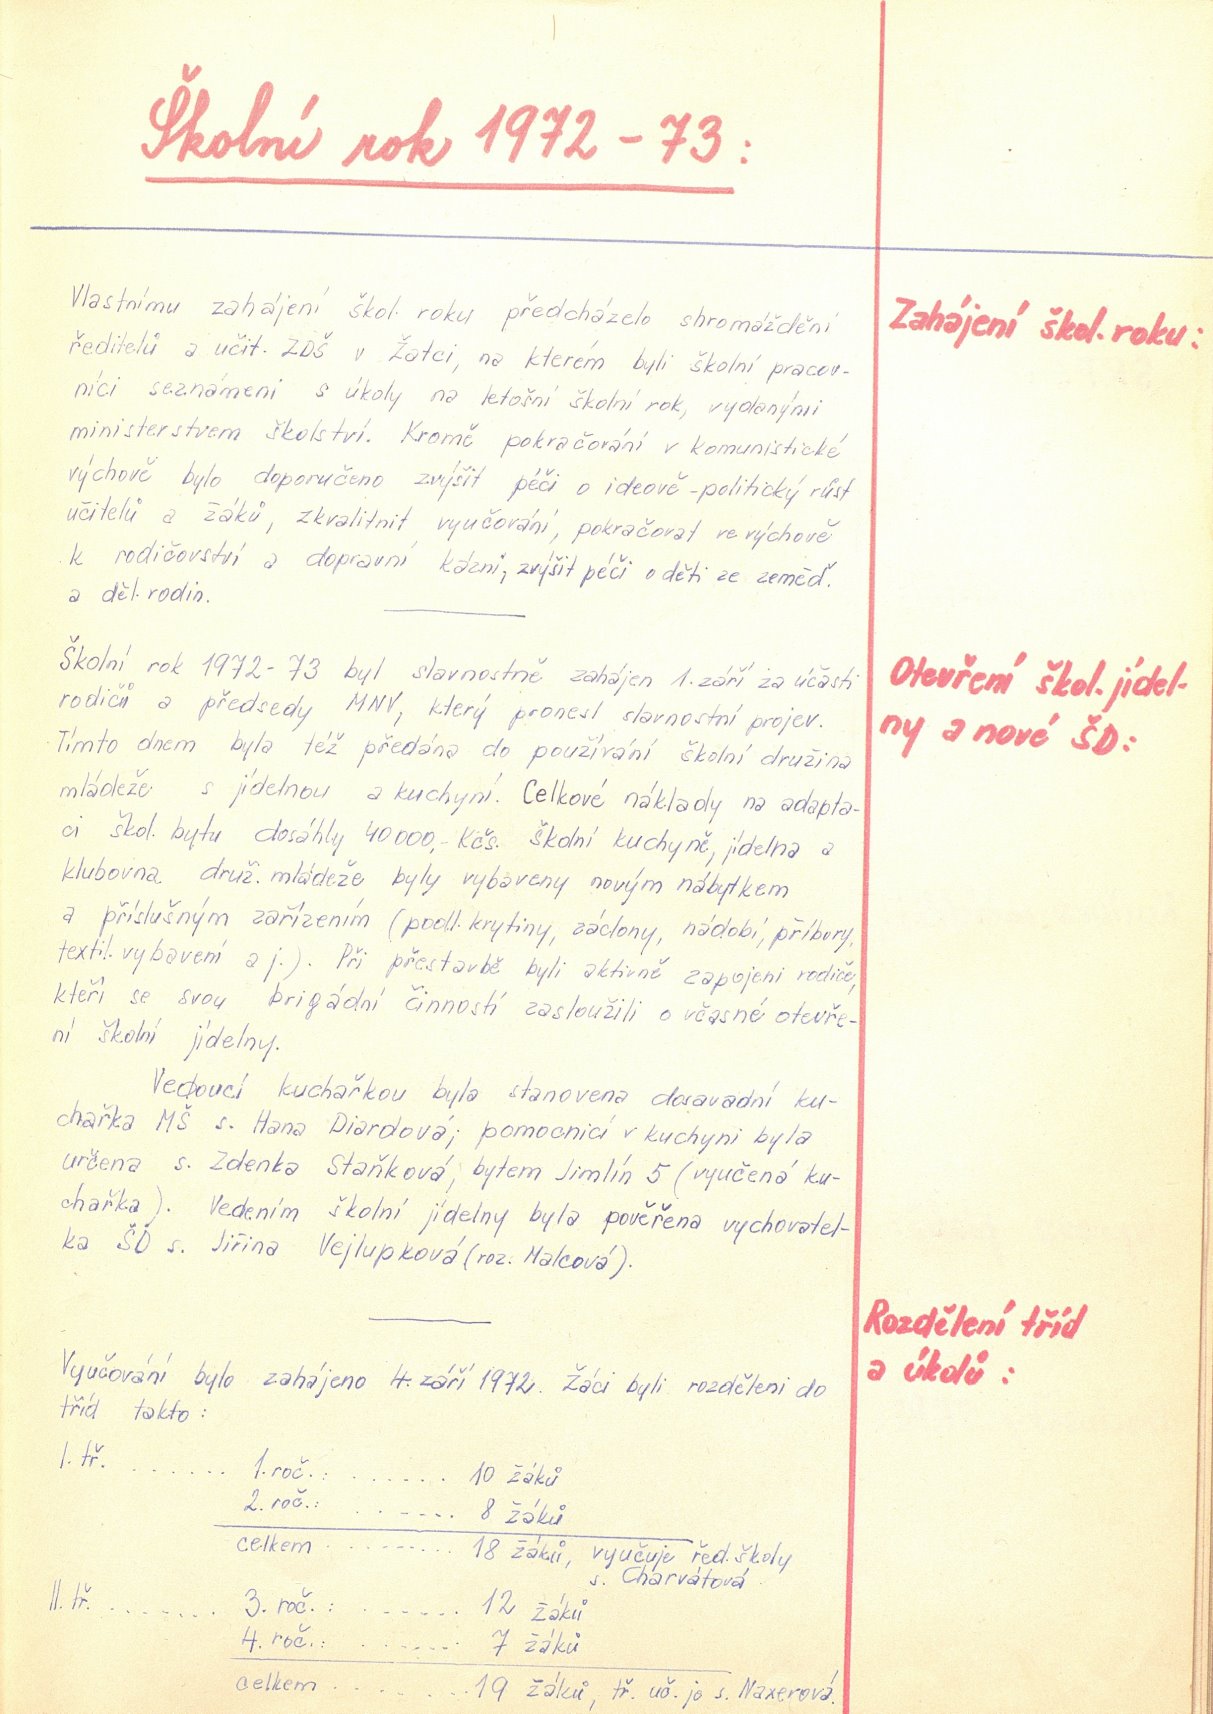 Školní rok 1972 - 73:
Zahájení škol. roku:
Vlastnímu zahájení škol. roku předcházelo shromáždění
ředitelů a učit. ZDŠ v Žatci, na kterém byli školní pracov-
níci seznámeni s úkoly na letošní školní rok, vydanými
ministerstvem školství. Kromě pokračování v komunistické
výchově bylo doporučeno zvýšit péči o ideově-politický růst
učitelů a žáků, zkvalitnit vyučování, pokračovat ve výchově
k rodičovství a dopravní kázni, zvýšit péči o děti ze zeměď.
a děl. rodin.
Otevření škol. jídel-
ny a nové ŠD:
Školní rok 1972-73 byl slavnostně zahájen 1. září za účasti
rodičů a předsedy MNV, který pronesl slavnostní projev.
Tímto dnem byla též předána do používání školní družina
mládeže s jídelnou a kuchyní. Celkové náklady na adapta-
ci škol. bytu dosáhly 40 000,- Kčs. Školní kuchyně, jídelna a
klubovna druž. mládeže byly vybaveny novým nábytkem
a příslušným zařízením (podl. krytiny, záclony, nádobí, příbory,
textil. vybavení a j.). Při přestavbě byli aktivně zapojeni rodiče,
kteří se svou brigádní činností zasloužili o včasné otevře-
ní školní jídelny.
Vedoucí kuchařkou byla stanovena dosavadní ku-
chařka MŠ s. Hana Diardová; pomocnicí v kuchyni byla
určena s. Zdenka Staňková, bytem Jimlín 5 (vyučená ku-
chařka). Vedením školní jídelny byla pověřena vychovatel-
ka ŠD s. Jiřina Vejlupková (roz. Malcová).
Rozdělení tříd
a úkolů:
Vyučování bylo zahájeno 4. září 1972. Žáci byli rozděleni do
tříd takto:
I. tř. ....... 1. roč.: ....... 10 žáků
2. roč.: ....... 8 žáků
celkem ........ 18 žáků, vyučuje řed. školy
s. Charvátová
II. tř. ....... 3. roč.: ....... 12 žáků
4. roč.: ....... 7 žáků
celkem ........ 19 žáků, tř. uč. je s. Naxerová.